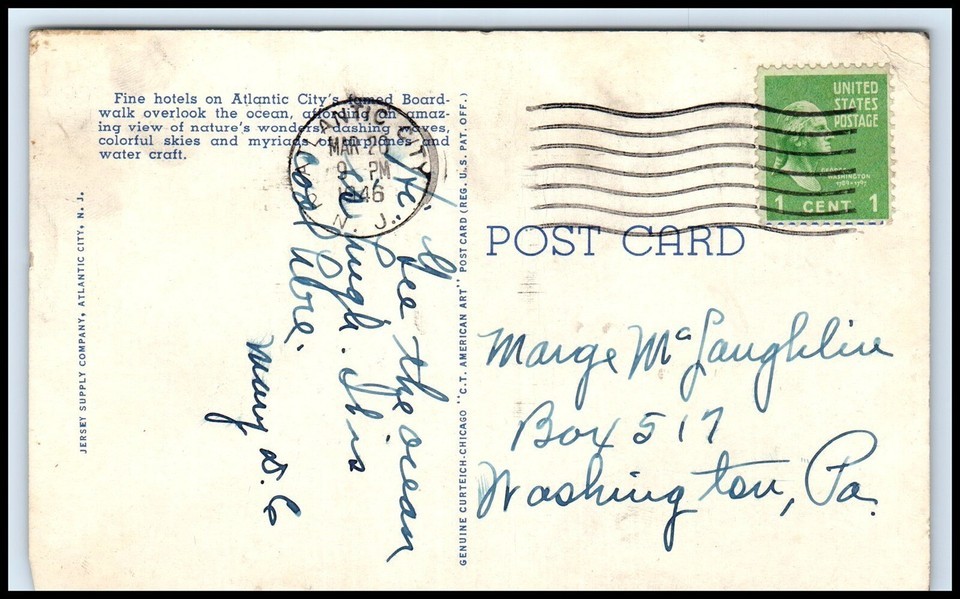 Fine hotels on Atlantic City's famed Board-
walk overlook the ocean, affording an amaz-
ing view of nature's wonders, dashing waves,
colorful skies and myriads of airplanes and
water craft.
ATLANTIC CITY
MAR 20
9 PM
1946
N. J.
UNITED
STATES
POSTAGE
GEORGE
WASHINGTON
1789-1797
1 CENT 1
POST CARD
JERSEY SUPPLY COMPANY, ATLANTIC CITY, N. J.
GENUINE CURTEICH-CHICAGO "C.T. AMERICAN ART" POST CARD (REG. U.S. PAT. OFF.)
See the ocean
is high. It is
cool here.
Mary D. C
Marge McLaughlin
Box 517
Washington, Pa.